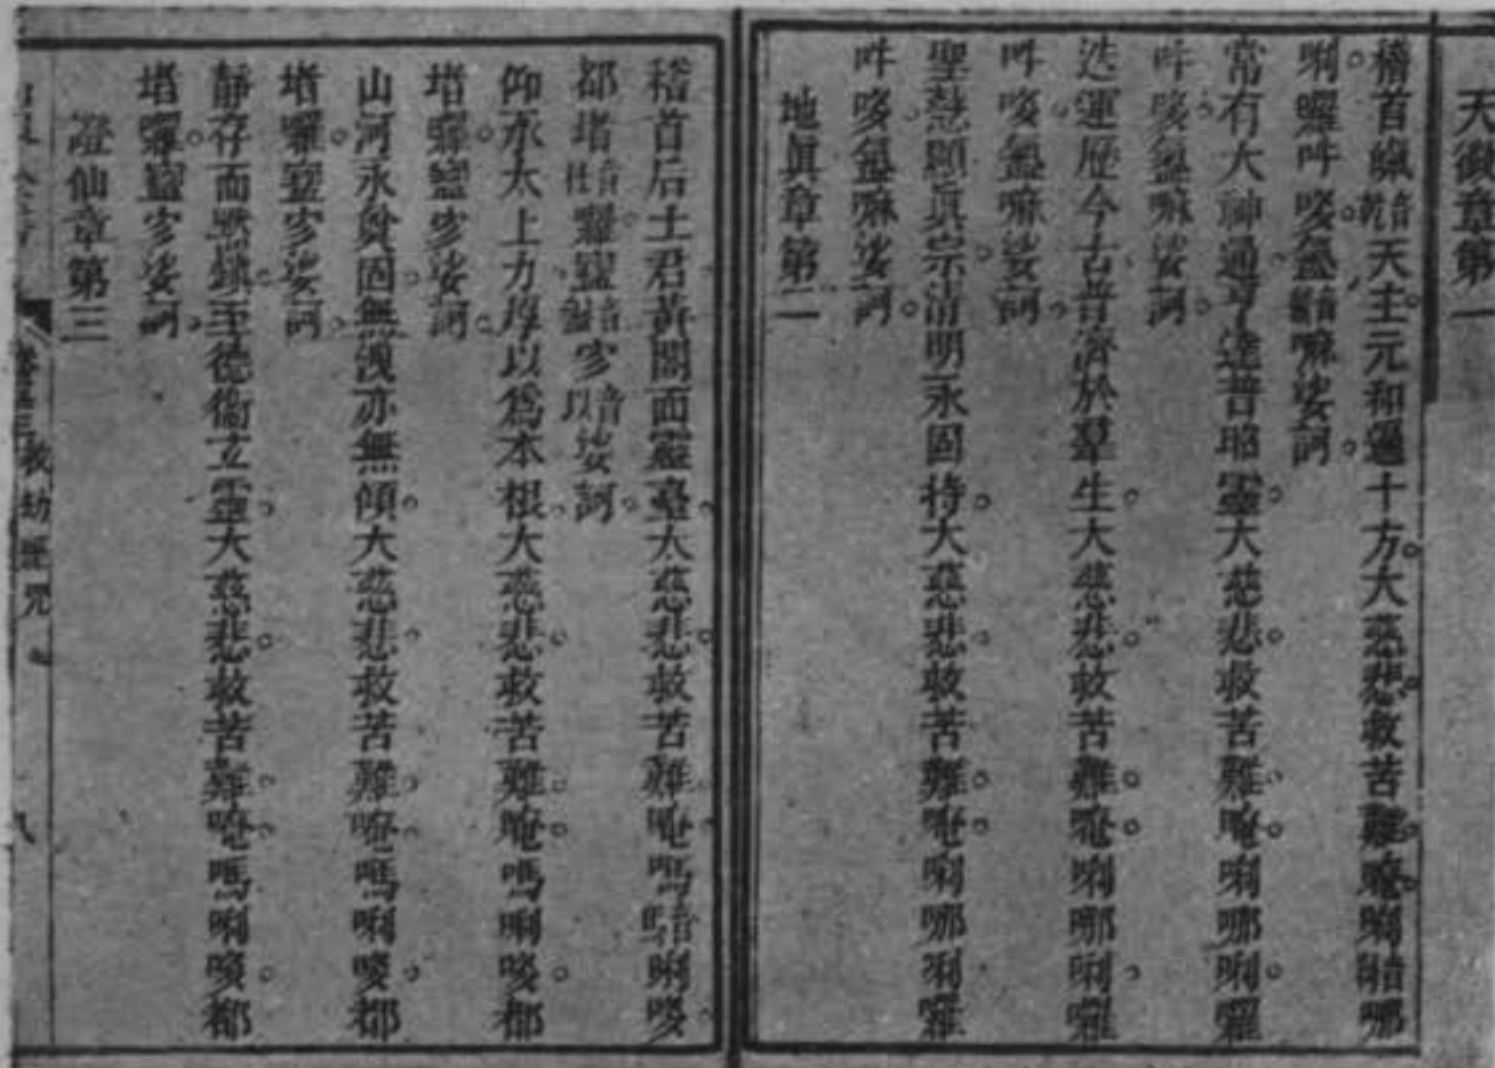 天微章第一
稽首天主元和遍十方大慈悲救苦難唵唎哪
唎囉吽㖼嘛娑訶
常有大神通達普昭靈大慈悲救苦難唵唎哪唎囉
吽㖼嘛娑訶
迭運歷今古普濟於羣生大慈悲救苦難唵唎哪唎囉
吽㖼嘛娑訶
聖慈顯眞宗清明永固持大慈悲救苦難唵唎哪唎囉
吽㖼嘛娑訶
地眞章第二
稽首后土君黃閣面靈臺大慈悲救苦難唵嗎唎㖼
都堵囉娑訶
仰承太上力厚以爲本根大慈悲救苦難唵嗎唎㖼都
堵囉娑訶
山河永奠固無洩亦無傾大慈悲救苦難唵嗎唎㖼都
堵囉娑訶
靜存而默鎮至德衞立靈大慈悲救苦難唵嗎唎㖼都
堵囉娑訶
證仙章第三
救劫經咒
八